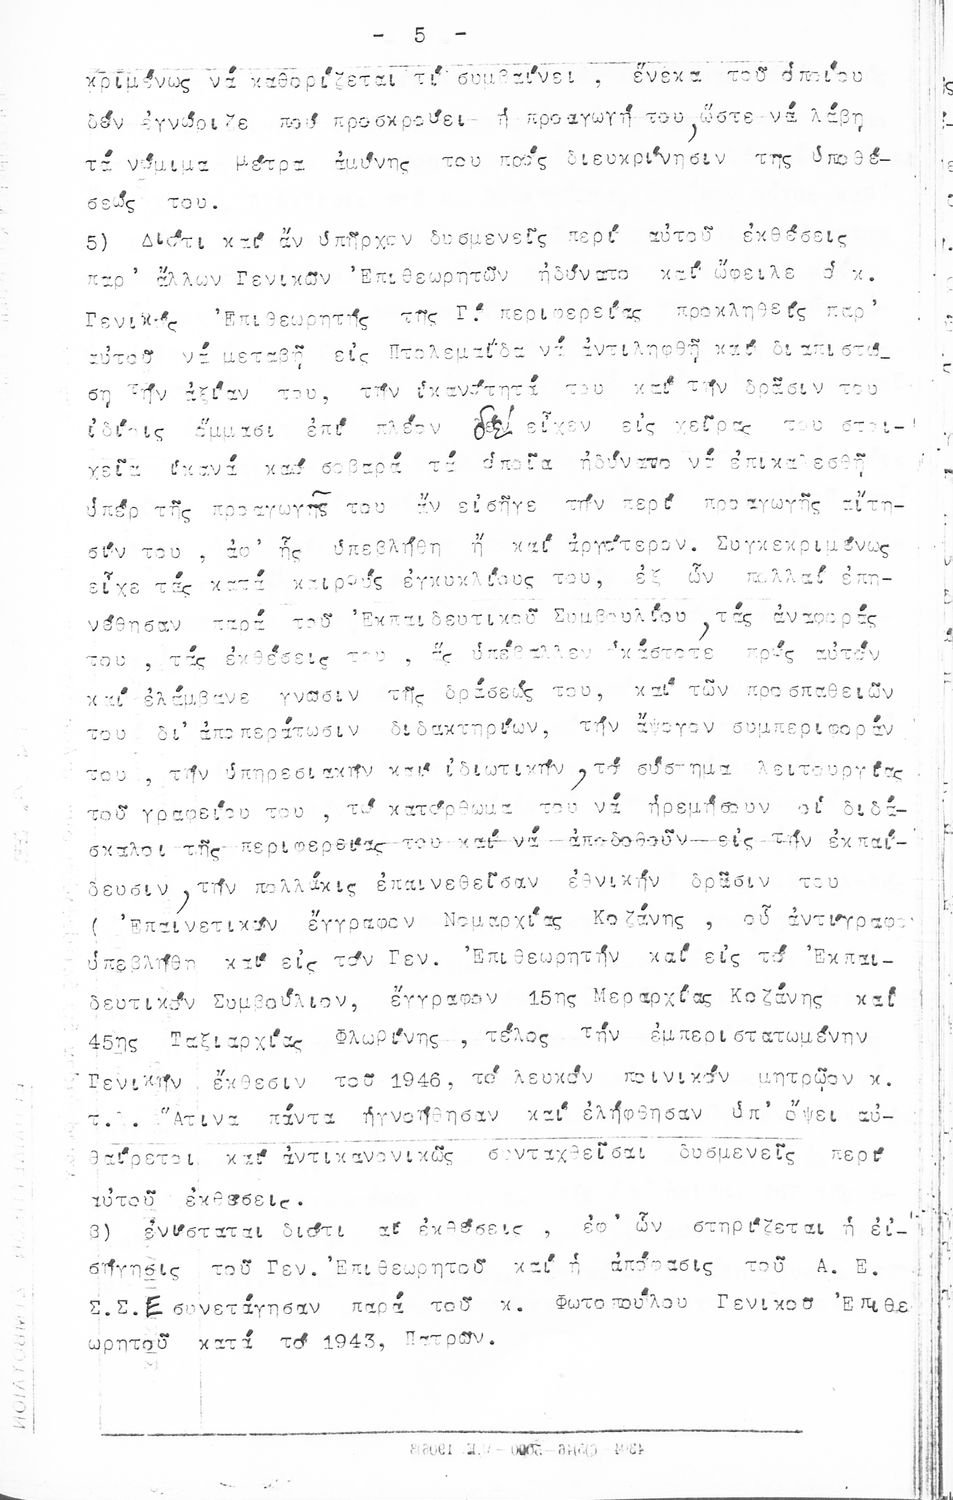 - 5 -
κριμένως νά καθορίζεται τί συμβαίνει , ἕνεκα τοῦ ὁποίου
δέν ἐγνώριζε πού προσκρούει ἡ προαγωγή του, ὥστε νά λάβη
τά νόμιμα μέτρα ἀμύνης του πρός διευκρίνησιν της ὑποθέ-
σεώς του.
5) Διότι καί ἄν ὑπῆρχον δυσμενεῖς περί αὐτοῦ ἐκθέσεις
παρ' ἄλλων Γενικῶν Ἐπιθεωρητῶν ἠδύνατο καί ὤφειλε ὁ κ.
Γενικός Ἐπιθεωρητής τῆς Γ! περιφερείας προκληθείς παρ'
αὐτοῦ νά μεταβῆ εἰς Πτολεμαΐδα νά ἀντιληφθῆ καί διαπιστώ_
ση τήν ἀξίαν του, τήν ἱκανότητά του καί τήν δρᾶσιν του
ἰδίοις ὄμμασι ἐπί πλέον δέ εἶχεν εἰς χεῖρας του στοι-
χεῖα ἱκανά καί σοβαρά τά ὁποῖα ἠδύνατο νά ἐπικαλεσθῆ
ὑπέρ τῆς προαγωγῆς του ἄν εἰσῆγε τήν περί προαγωγῆς αἴτη-
σίν του , ἀφ' ἧς ὑπεβλήθη ἤ καί ἀργότερον. Συγκεκριμένως
εἶχε τάς κατά καιρούς ἐγκυκλίους του, ἐξ ὧν πολλαί ἐπη-
νέθησαν παρά τοῦ Ἐκπαιδευτικοῦ Συμβουλίου, τάς ἀναφοράς
του , τάς ἐκθέσεις του , ἅς ὑπέβαλλεν ἑκάστοτε πρός αὐτόν
καί ἐλάμβανε γνῶσιν τῆς δράσεώς του, καί τῶν προσπαθειῶν
του δι' ἀποπεράτωσιν διδακτηρίων, τήν ἄψογον συμπεριφοράν
του , τήν ὑπηρεσιακήν καί ἰδιωτικήν, τό σύστημα λειτουργίας
τοῦ γραφείου του , τό κατόρθωμα του νά ἠρεμήσουν οἱ διδά-
σκαλοι τῆς περιφερείας του καί νά ἀποδοθοῦν εἰς τήν ἐκπαί-
δευσιν, τήν πολλάκις ἐπαινεθεῖσαν ἐθνικήν δρᾶσιν του
( Ἐπαινετικόν ἔγγραφον Νομαρχίας Κοζάνης , οὗ ἀντίγραφο
ὑπεβλήθη καί εἰς τόν Γεν. Ἐπιθεωρητήν καί εἰς τό Ἐκπαι-
δευτικόν Συμβούλιον, ἔγγραφον 15ης Μεραρχίας Κοζάνης καί
45ης Ταξιαρχίας Φλωρίνης , τέλος τήν ἐμπεριστατωμένην
Γενικήν ἔκθεσιν τοῦ 1946, τό λευκόν ποινικόν μητρῷον κ.
τ.λ. Ἅτινα πάντα ἠγνοήθησαν καί ἐλήφθησαν ὑπ' ὄψει αὐ-
θαίρετοι καί ἀντικανονικῶς συνταχθεῖσαι δυσμενεῖς περί
αὐτοῦ ἐκθέσεις.
3) ἐνίσταται διότι αἱ ἐκθέσεις , ἐφ' ὧν στηρίζεται ἡ εἰ-
σήγησις τοῦ Γεν. Ἐπιθεωρητοῦ καί ἡ ἀπόφασις τοῦ Α. Ε.
Σ.Σ.Ε συνετάγησαν παρά τοῦ κ. Φωτοπούλου Γενικοῦ Ἐπιθε
ωρητοῦ κατά τό 1943, Πατρῶν.